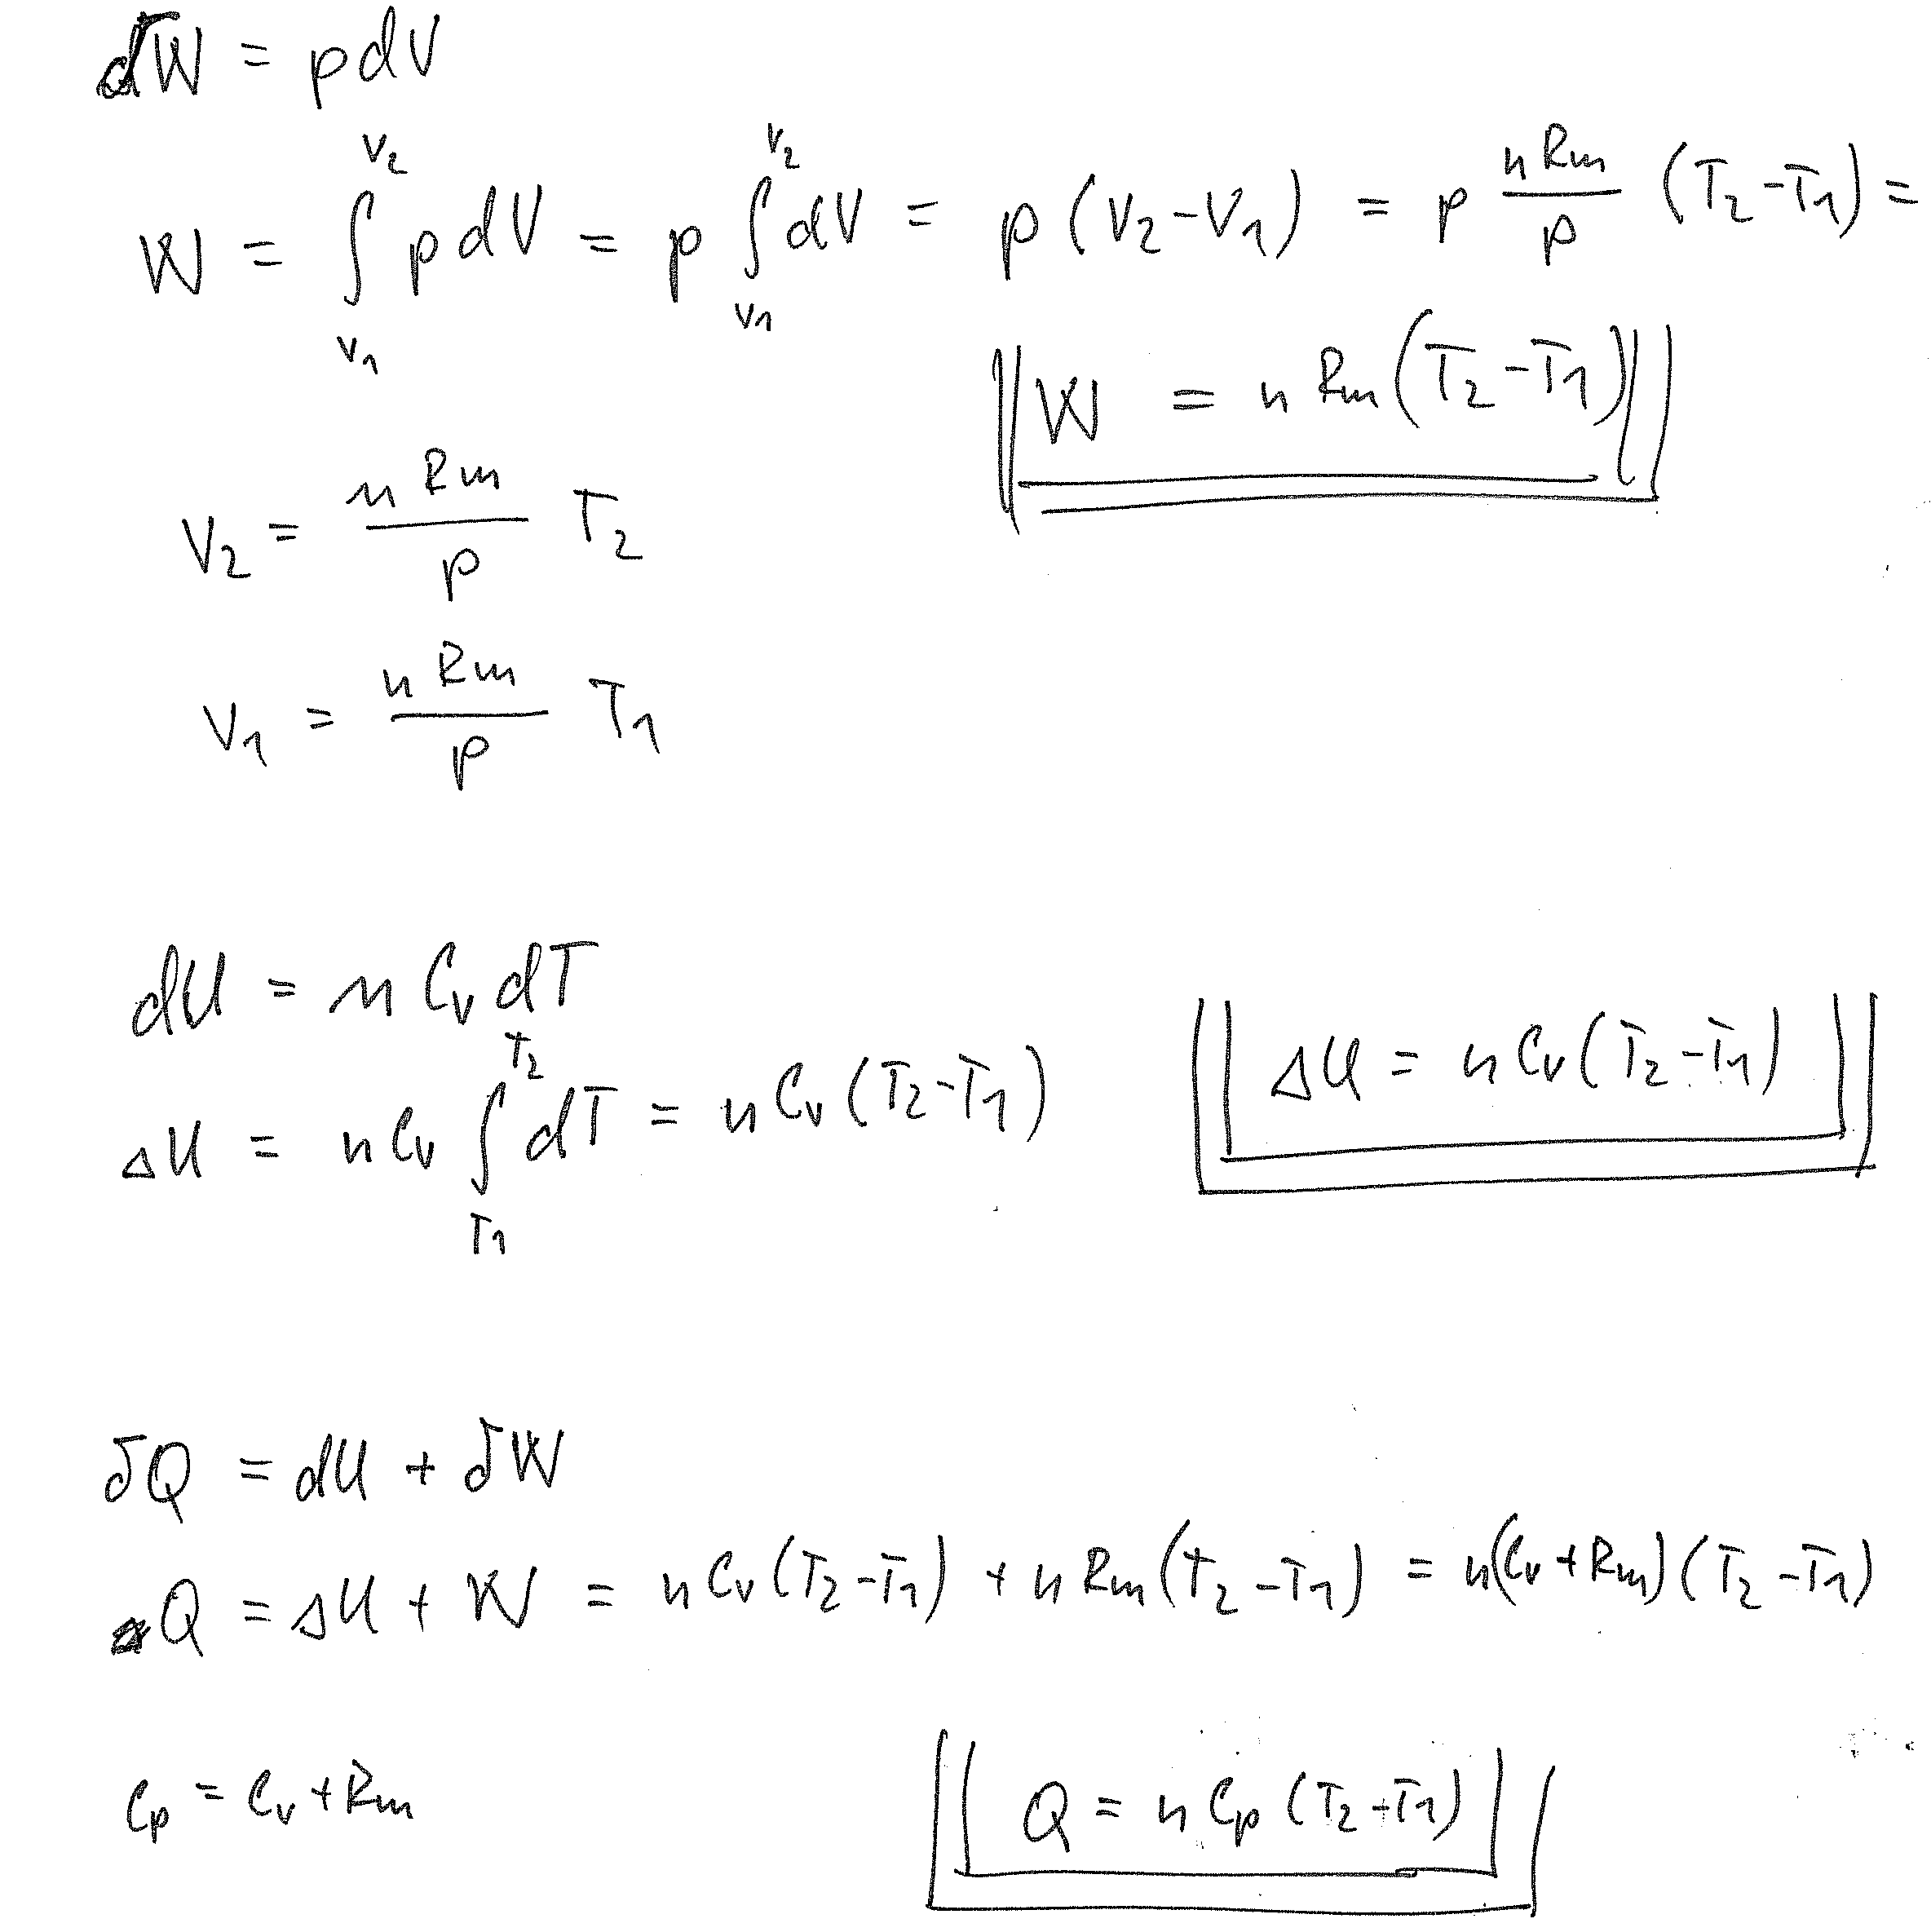 δW = p dV
W = ∫_{V₁}^{V₂} p dV = p ∫_{V₁}^{V₂} dV = p (V₂ - V₁) = p \frac{n Rm}{p} (T₂ - T₁) =
W = n Rm (T₂ - T₁)
V₂ = \frac{n Rm}{p} T₂
V₁ = \frac{n Rm}{p} T₁
dU = n Cv dT
ΔU = n Cv ∫_{T₁}^{T₂} dT = n Cv (T₂ - T₁)
ΔU = n Cv (T₂ - T₁)
δQ = dU + δW
Q = ΔU + W = n Cv (T₂ - T₁) + n Rm (T₂ - T₁) = n (Cv + Rm) (T₂ - T₁)
Cp = Cv + Rm
Q = n Cp (T₂ - T₁)